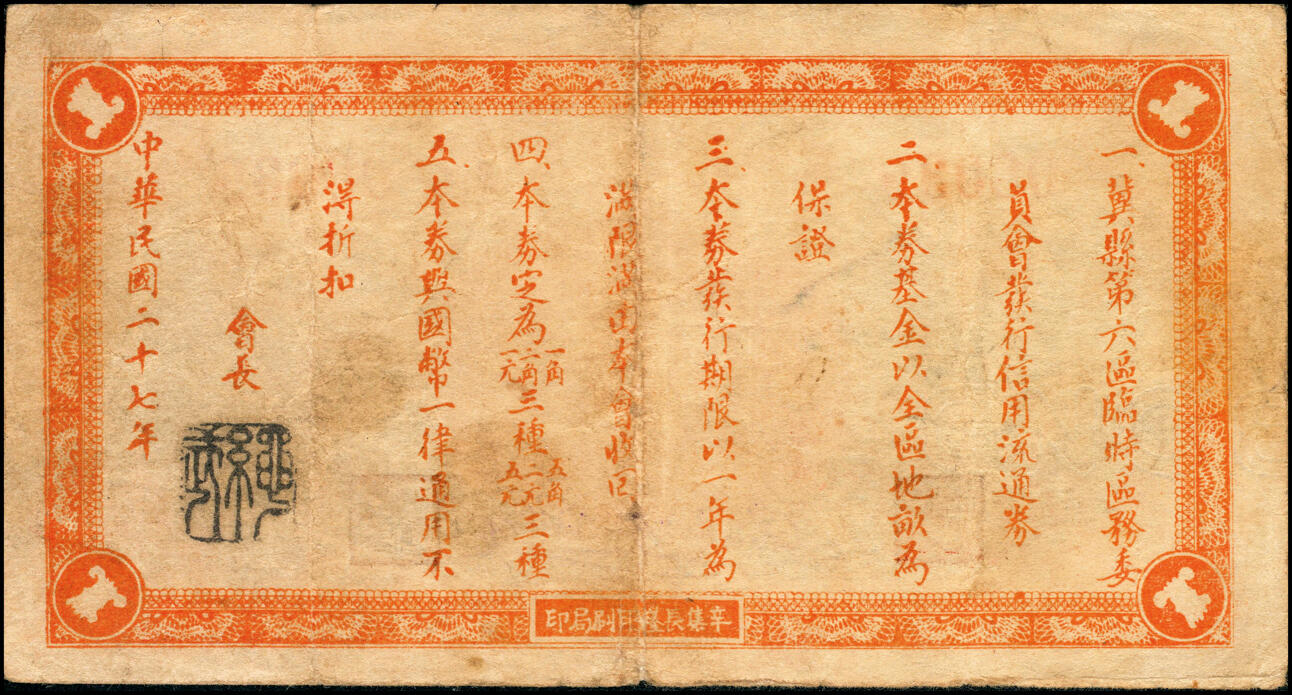 一、冀縣第六區臨時區務委
員會發行信用流通券
二、本券基金以全區地畝為
保證
三、本券發行期限以一年為
滿限滿由本會收回
四、本券定為一角二角一元三種五角二元五元三種
五、本券與國幣一律通用不
得折扣
會長
中華民國二十七年
辛集長 印刷局印